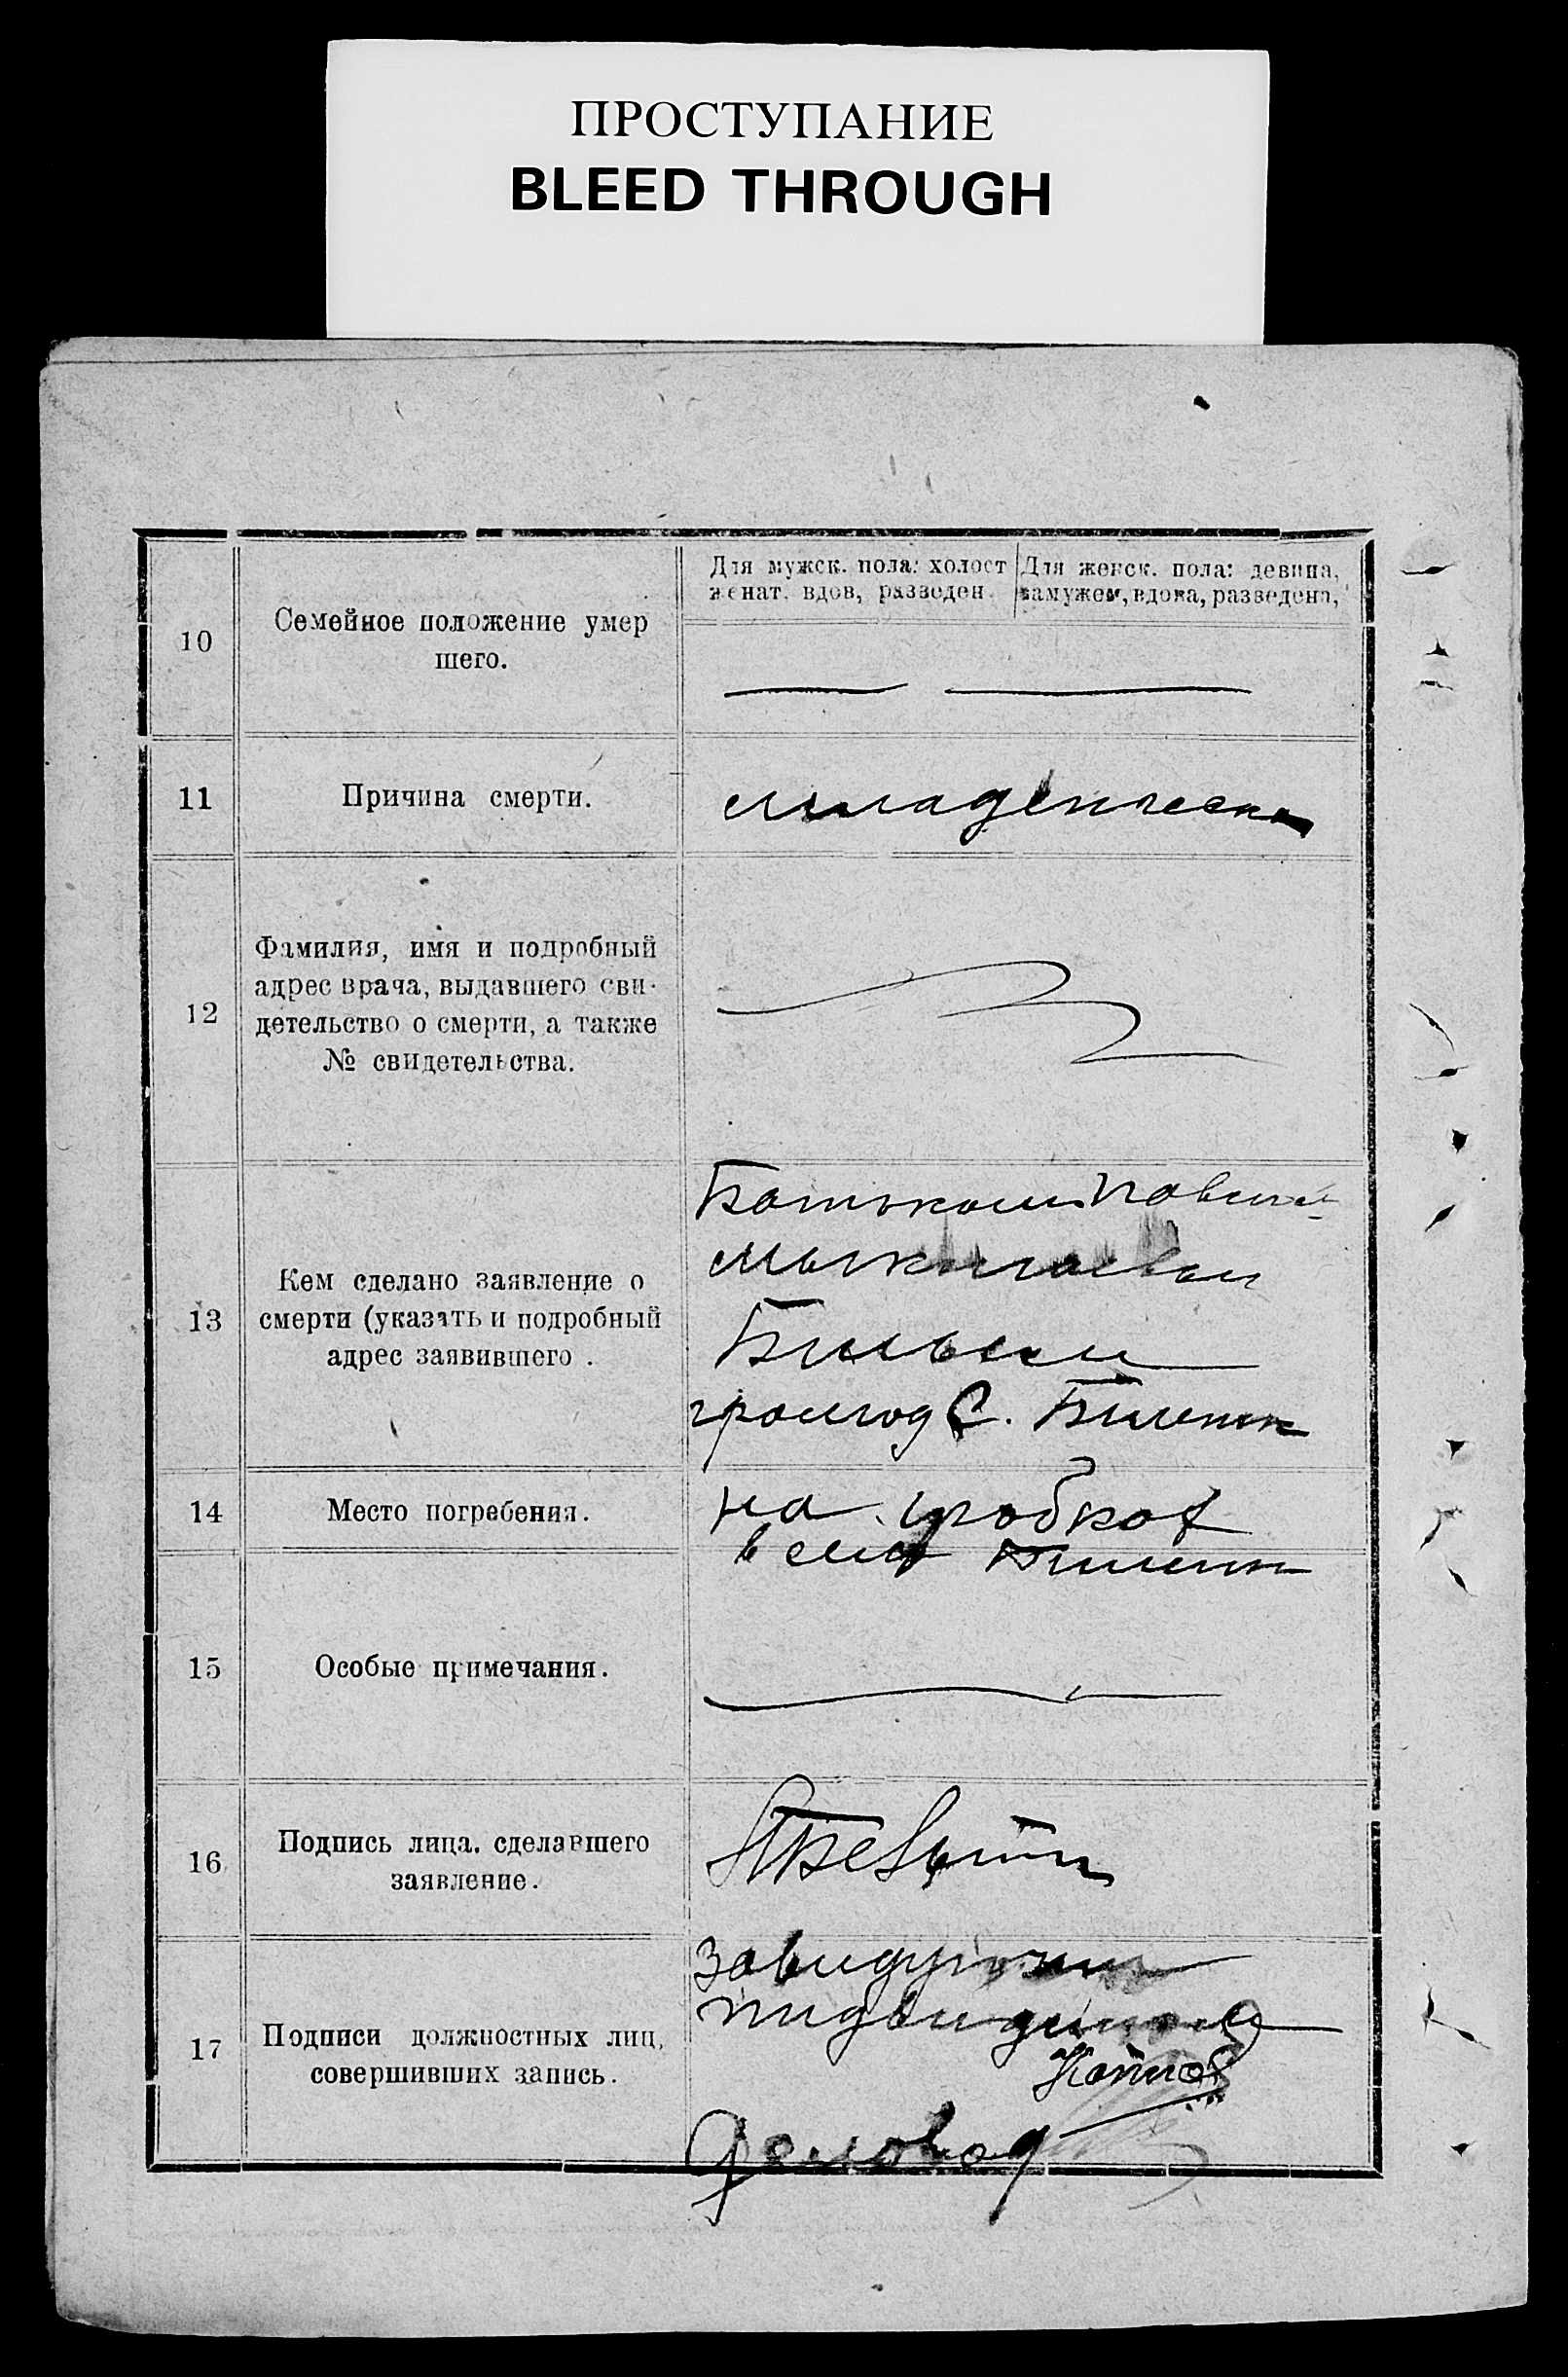 ПРОСТУПАНИЕ
BLEED THROUGH
10
Семейное положение умер
шего.
Для мужск. пола: холост
женат, вдов, разведен.
Для женск. пола: девица,
замужем, вдова, разведена,
11
Причина смерти.
младенческа
12
Фамилия, имя и подробный
адрес врача, выдавшего сви-
детельство о смерти, а также
№ свидетельства.
13
Кем сделано заявление о
смерти (указать и подробный
адрес заявившего .
Батьком
громод С.
14
Место погребения.
на гробков
в сели
15
Особые примечания.
16
Подпись лица, сделавшего
заявление.
17
Подписи должностных лиц,
совершивших запись.
завидуючий
пидвиддилом
Діловод